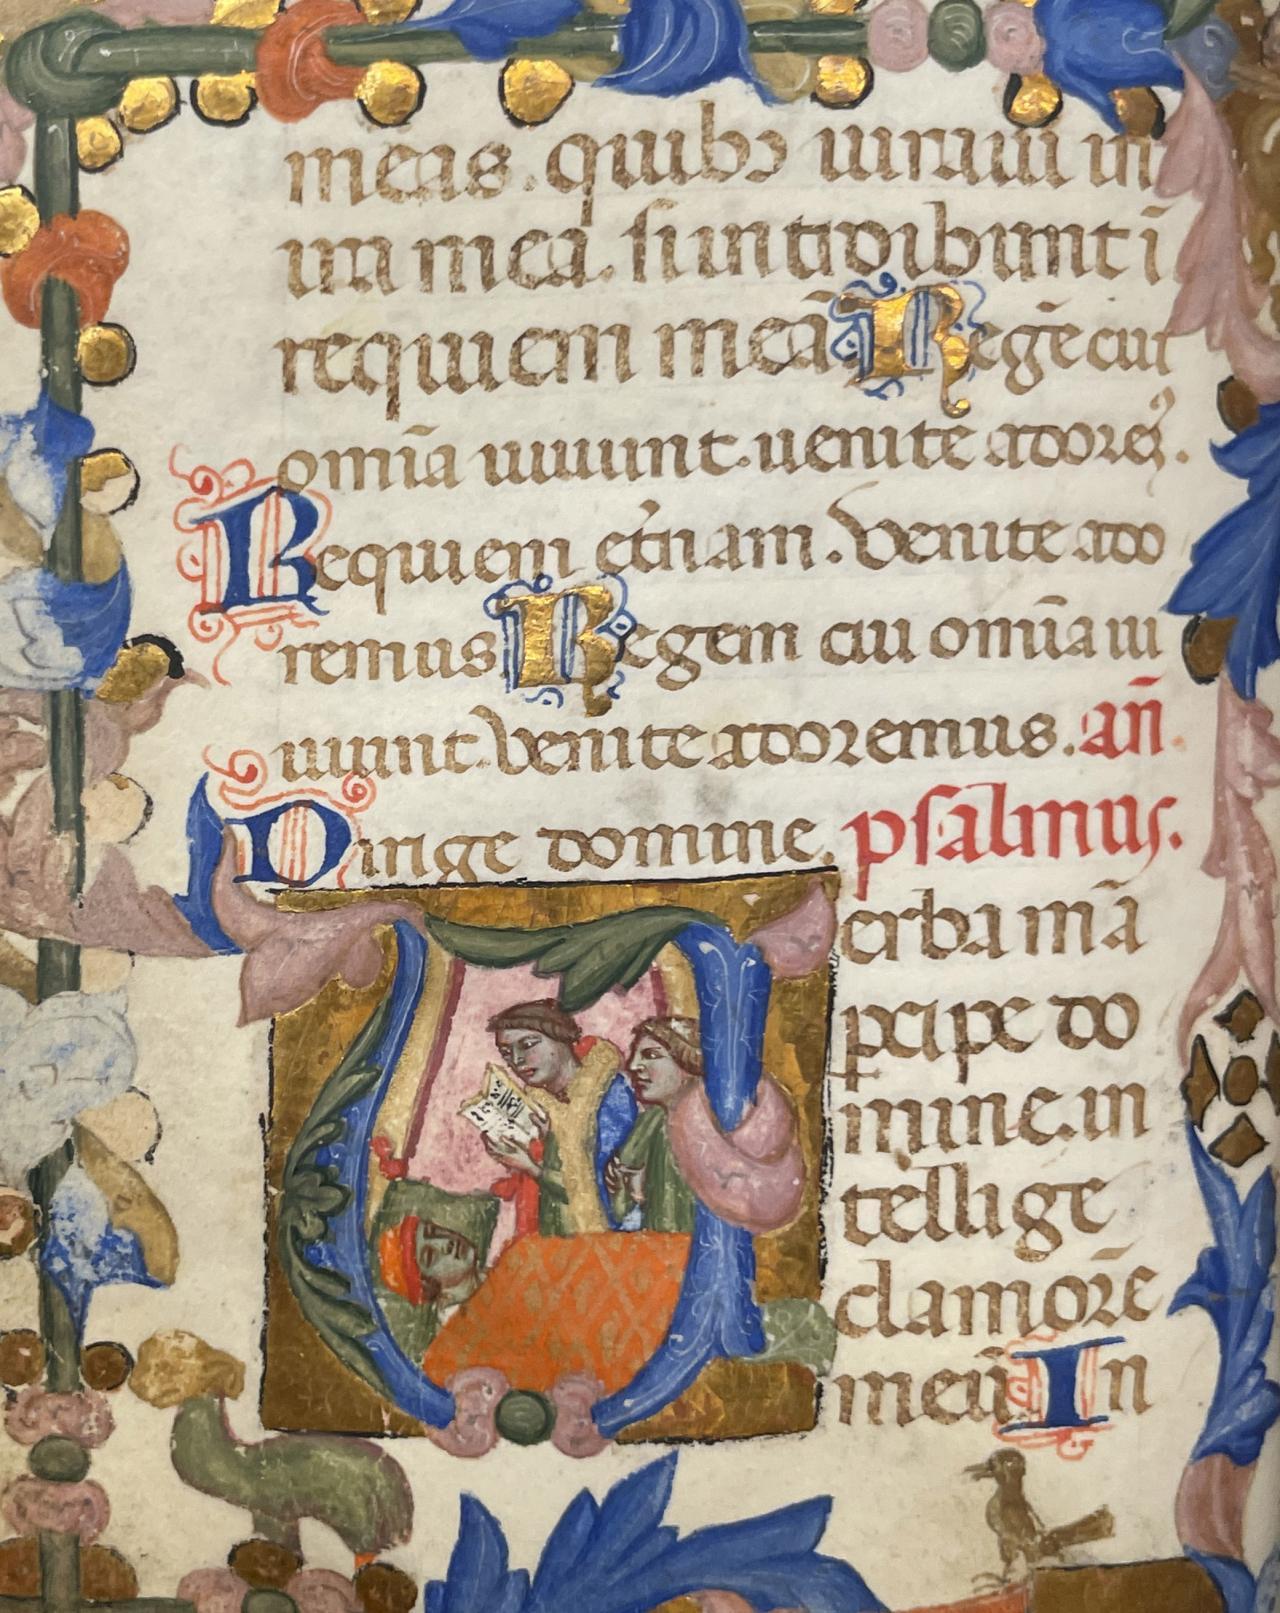 meas. quibꝫ iuraui in
ira mea. si introibunt ī
requiem meā Regē cui
om̄ia uiuunt. uenite adorem⁹.
Requiem et̄nam. Venite ado
remus Regem cui om̄ia ui
uunt. Venite adoremus. an̄.
Dirige domine. psalmus.
Verba m̄a
ꝑcipe do
mine. in
tellige
clamorē
meū In